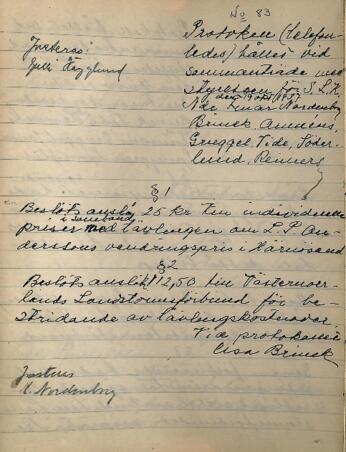 No 83
Justeras:
Gulli Hägglund
Protokoll (telefon-
ledes) hållet vid
sammanträde med
styrelsen för S.L.K.
den 19 okt 1937
Nde Einar Nordenberg
Brinck, Amnéus,
Gruggel, Tide, Söder-
lund, Reiners
§ 1
Beslöts anslå 25 kr till individuella
i samband
priser med tävlingen om L. P. An-
derssons vandringspris i Härnösand
§ 2
Beslöts anslå 112,50 till Västernorr-
lands Landstormsförbund för be-
stridande av tävlingskostnader.
Vid protokollet
Elsa Brinck
Justeras
Nordenberg